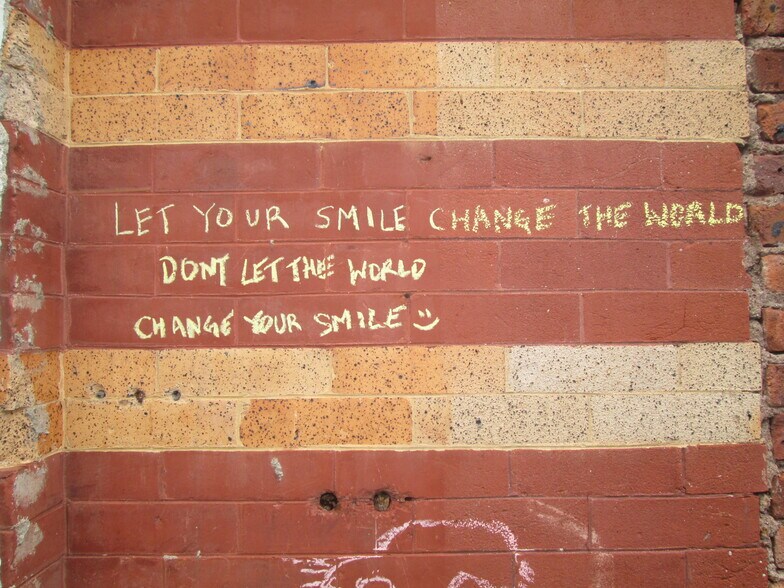 LET YOUR SMILE CHANGE THE WORLD
DONT LET THE WORLD
CHANGE YOUR SMILE :)